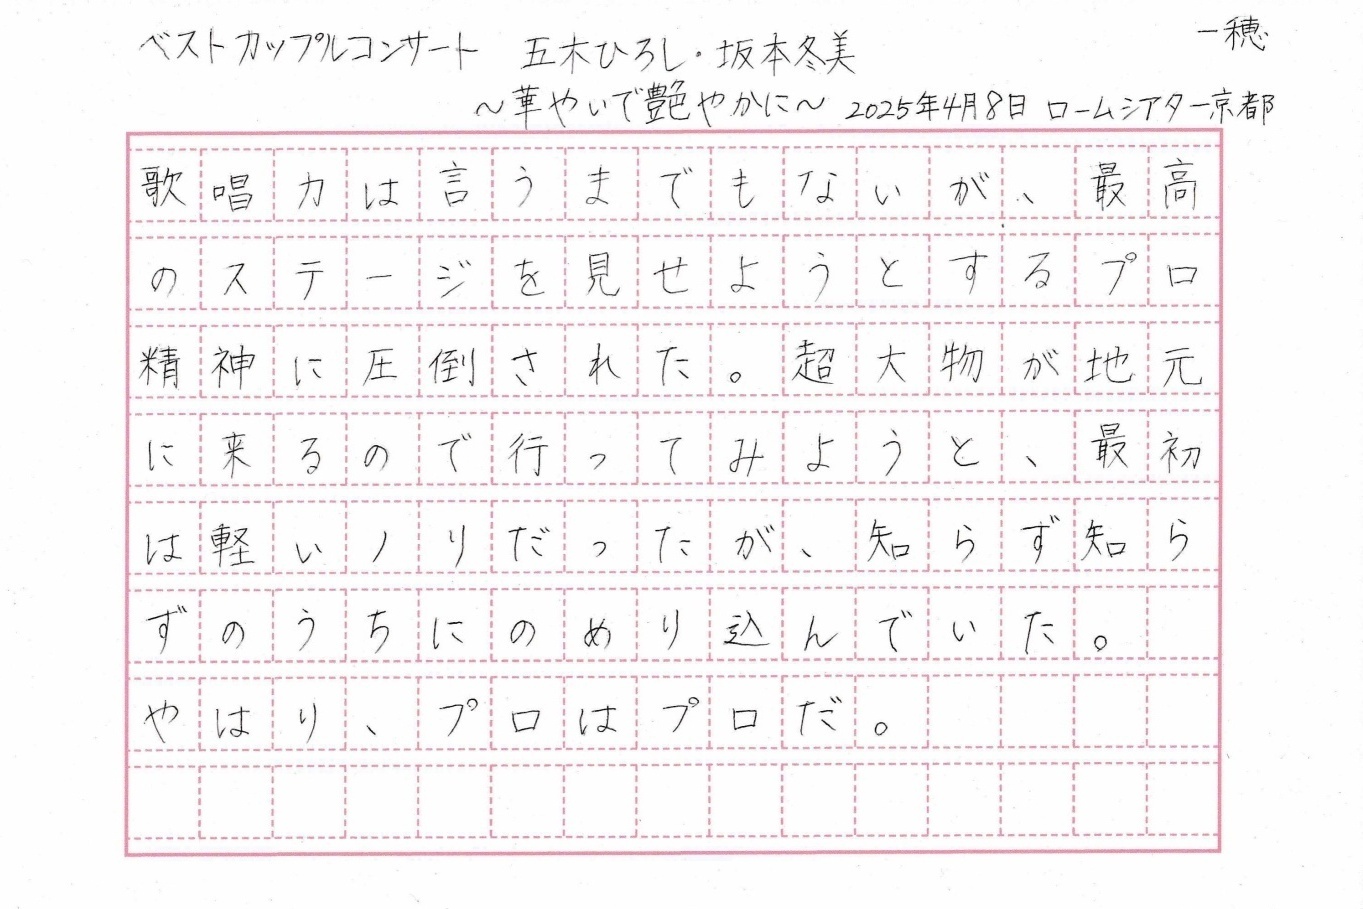 一穂
ベストカップルコンサート 五木ひろし・坂本冬美
〜華やいで艶やかに〜 2025年4月8日 ロームシアター京都
歌唱力は言うまでもないが、最高
のステージを見せようとするプロ
精神に圧倒された。超大物が地元
に来るので行ってみようと、最初
は軽いノリだったが、知らず知ら
ずのうちにのめり込んでいた。
やはり、プロはプロだ。